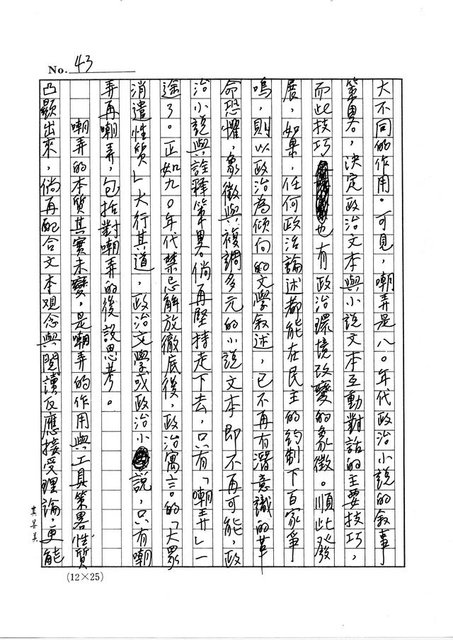 No. 43
大不同的作用。可見，嘲弄是八〇年代政治小說的敘事
策畧，決定政治文本與小說文本互動對話的主要技巧，
而此技巧也有政治環境改變的象徵。順此發
展，如果，任何政治論述都能在民主的約制下百家爭
鳴，則以政治為傾向的文學敘述，已不再有潛意識的革
命恐懼，象徵與複調多元的小說文本即不再可能，政
治小說與詮釋策畧倘再堅持走下去，只有「嘲弄」一
途了。正如九〇年代禁忌解放徹底後，政治寓言的「大眾
消遣性質」大行其道，政治文學或政治小說，只有嘲
弄再嘲弄，包括對嘲弄的後設思考。
嘲弄的本質其實未變，是嘲弄的作用與工具策畧性質
凸顯出來，倘再配合文本觀念與閱讀反應接受理論，更能
(12×25)